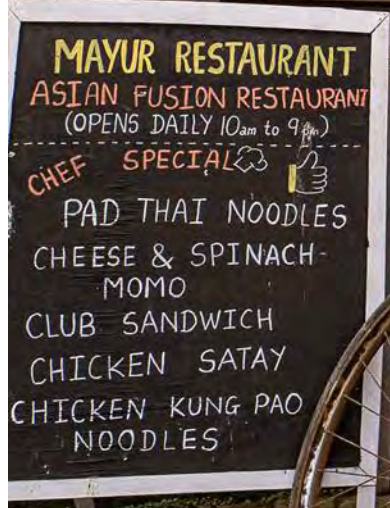 MAYUR RESTAURANT
ASIAN FUSION RESTAURANT
(OPENS DAILY 10am to 9pm)
CHEF SPECIAL
PAD THAI NOODLES
CHEESE & SPINACH-
MOMO
CLUB SANDWICH
CHICKEN SATAY
CHICKEN KUNG PAO
NOODLES